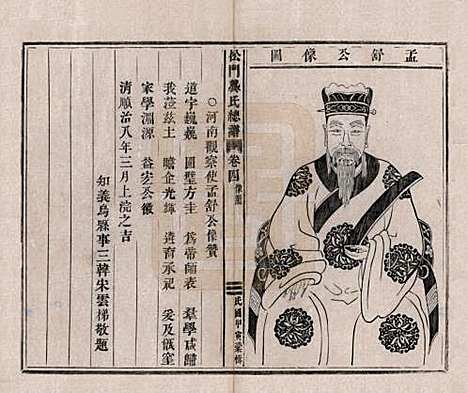 孟舒公像圖
松門龔氏總譜 卷四 像圖
民國甲寅梁修
○河南觀察使孟舒公像贊
道宇巍巍 圓璧方圭 爲帝師表 羣學咸歸
我涖茲土 瞻企光輝 遺育承祀 爰及
家學淵源 益宏公徽
清順治八年三月上浣之吉
知義烏縣事三韓宋雲梯敬題